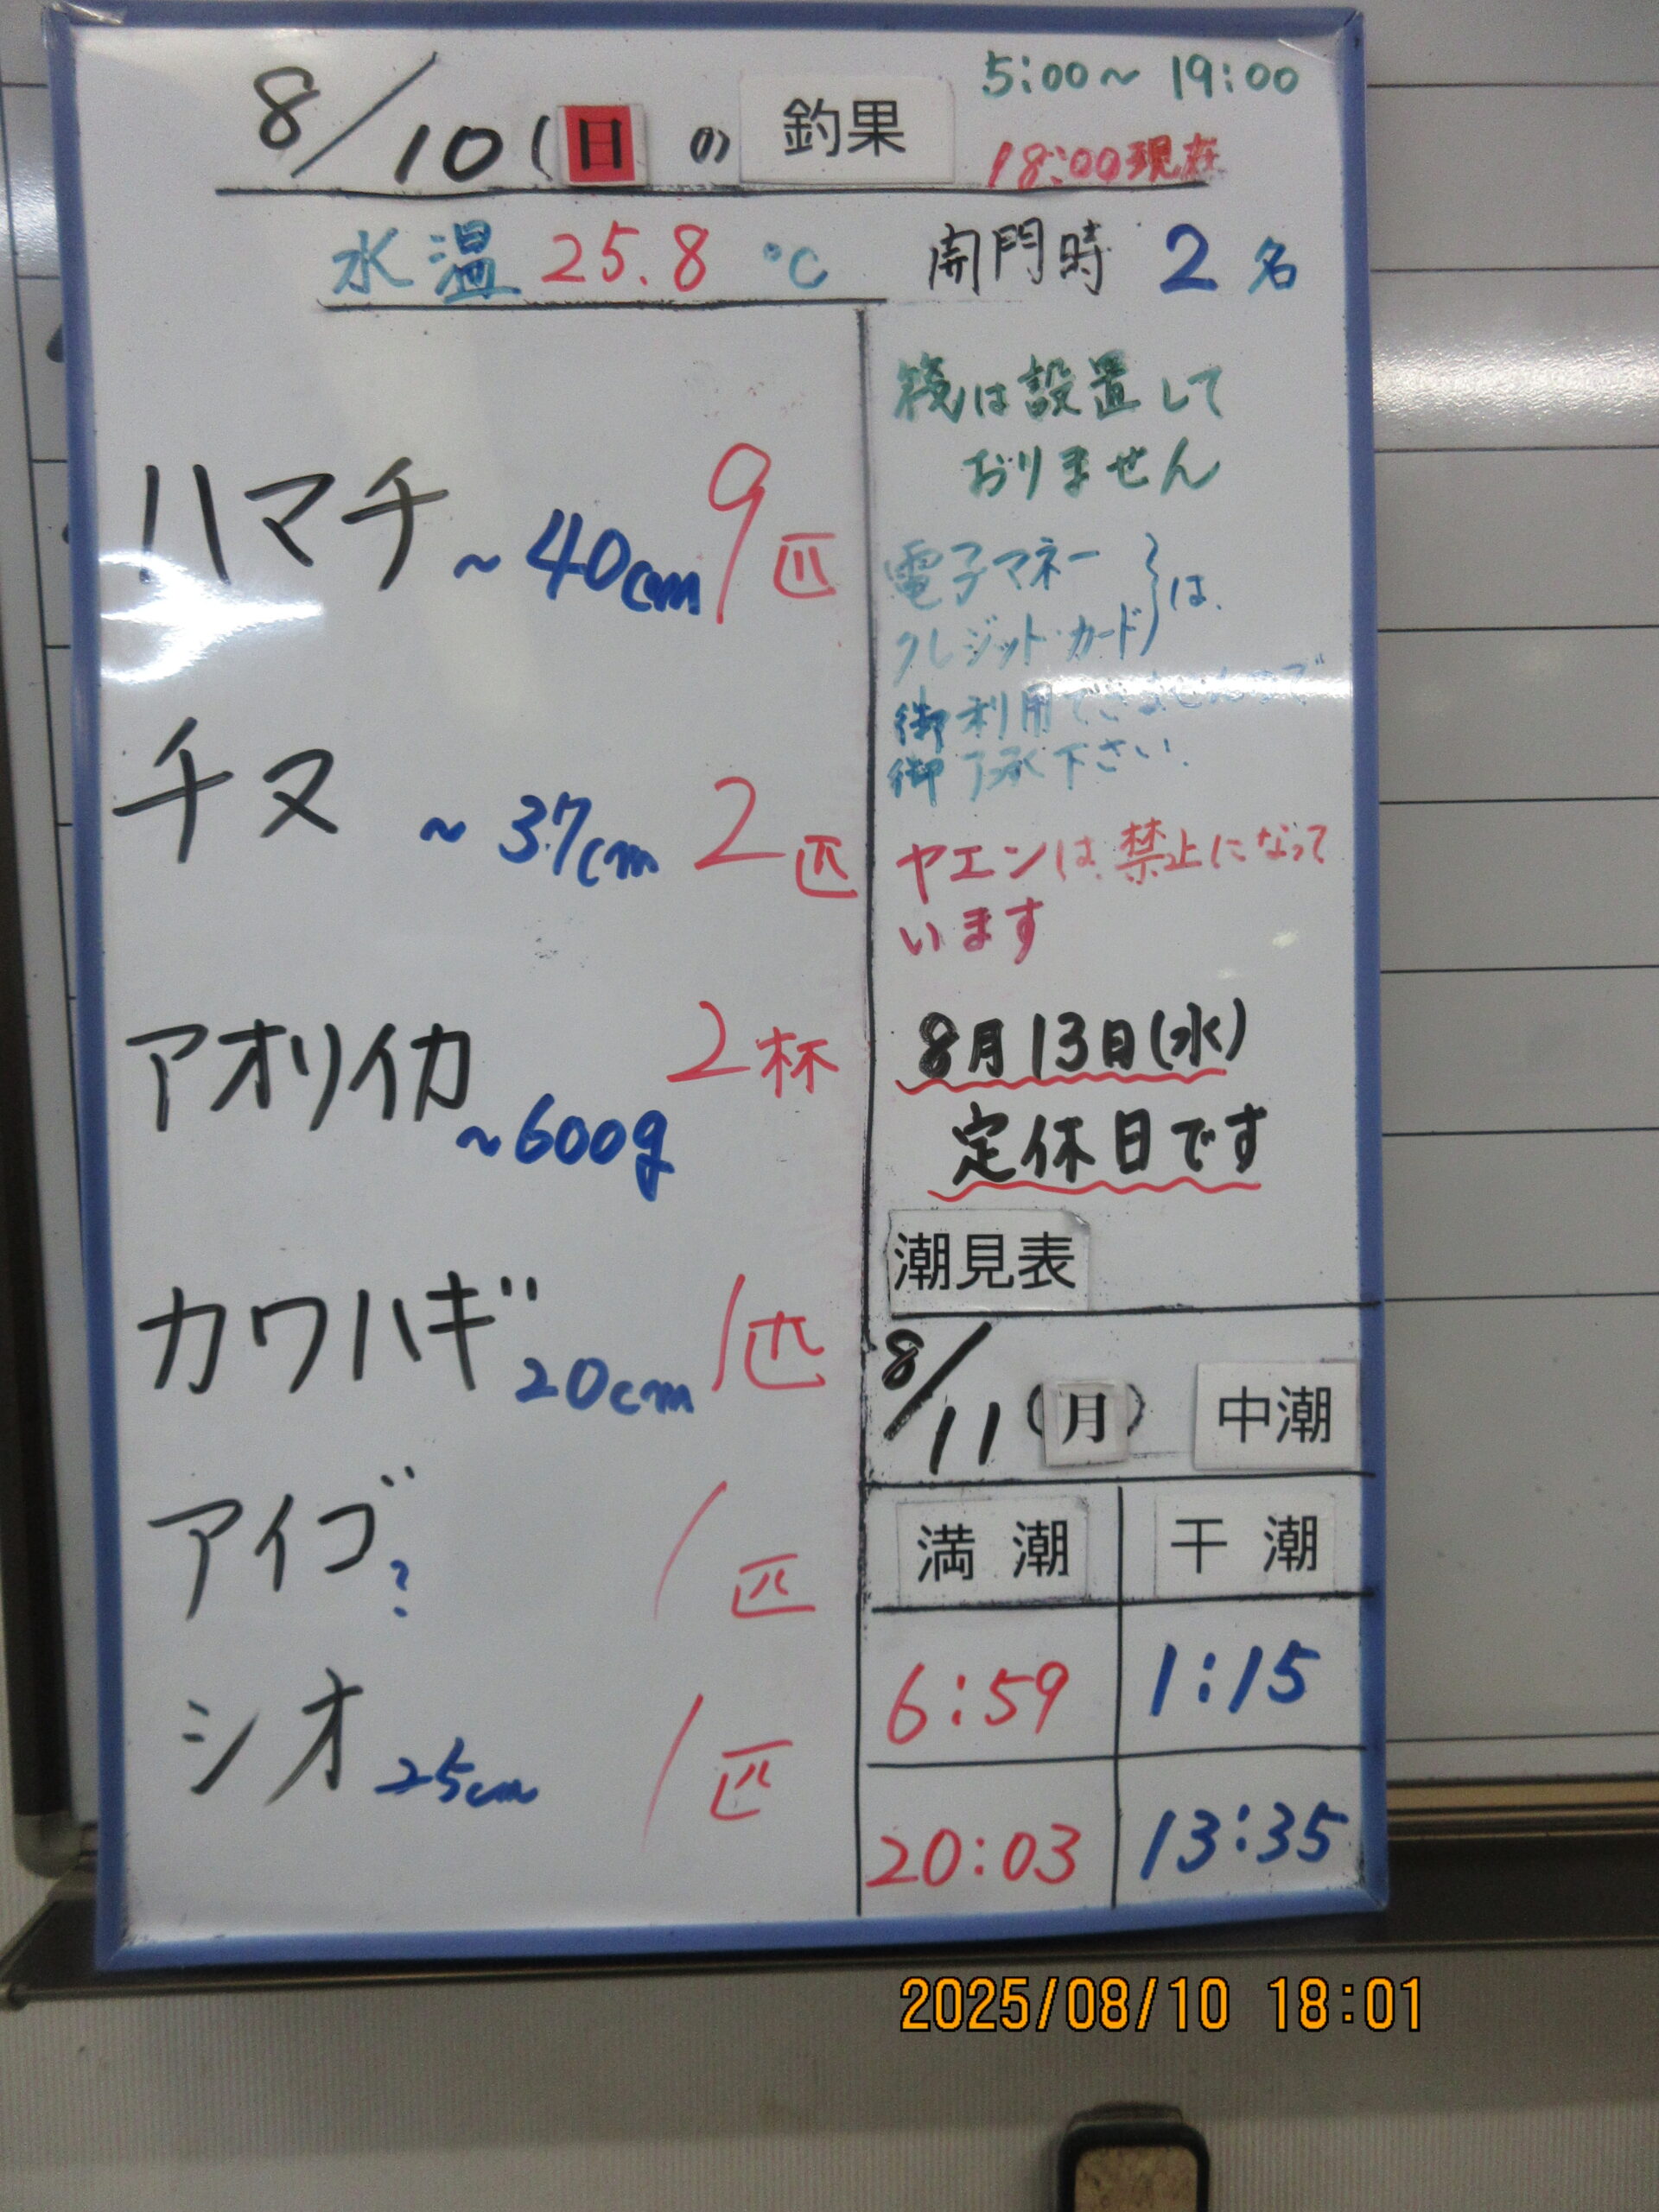 8/10(日の 釣果
5:00～19:00
18:00現在
水温 25.8 ℃
開門時 2名
ハマチ ～40cm 9匹
チヌ ～37cm 2匹
アオリイカ ～600g 2杯
カワハギ 20cm 1匹
アイゴ ? 1匹
シオ 25cm 1匹
筏は設置して
おりません
電子マネー
クレジット・カード}は、
御利用できませんので
御了承下さい.
ヤエンは、禁止になって
います
8月13日(水)
定休日です
潮見表
8/11(月) 中潮
満潮 干潮
6:59 1:15
20:03 13:35
2025/08/10 18:01